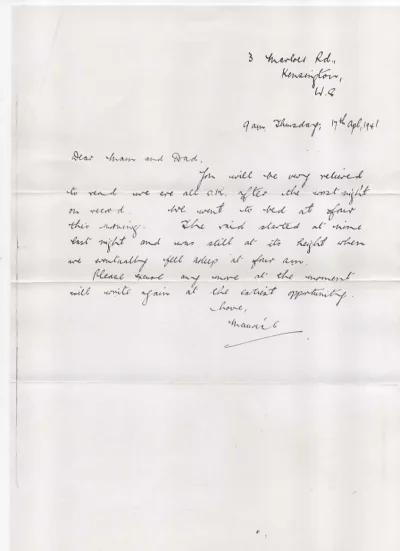 3 Marloes Rd.,
Kensington,
W.8
9 am Thursday, 17th Apl, 1941
Dear Mam and Dad,
You will be very relieved
to read we are all O.K. after the worst night
on record. We went to bed at four
this morning. The raid started at nine
last night and was still at its height when
we eventually fell asleep at four am.
Please excuse any more at the moment
will write again at the earliest opportunity.
Love,
Maurice